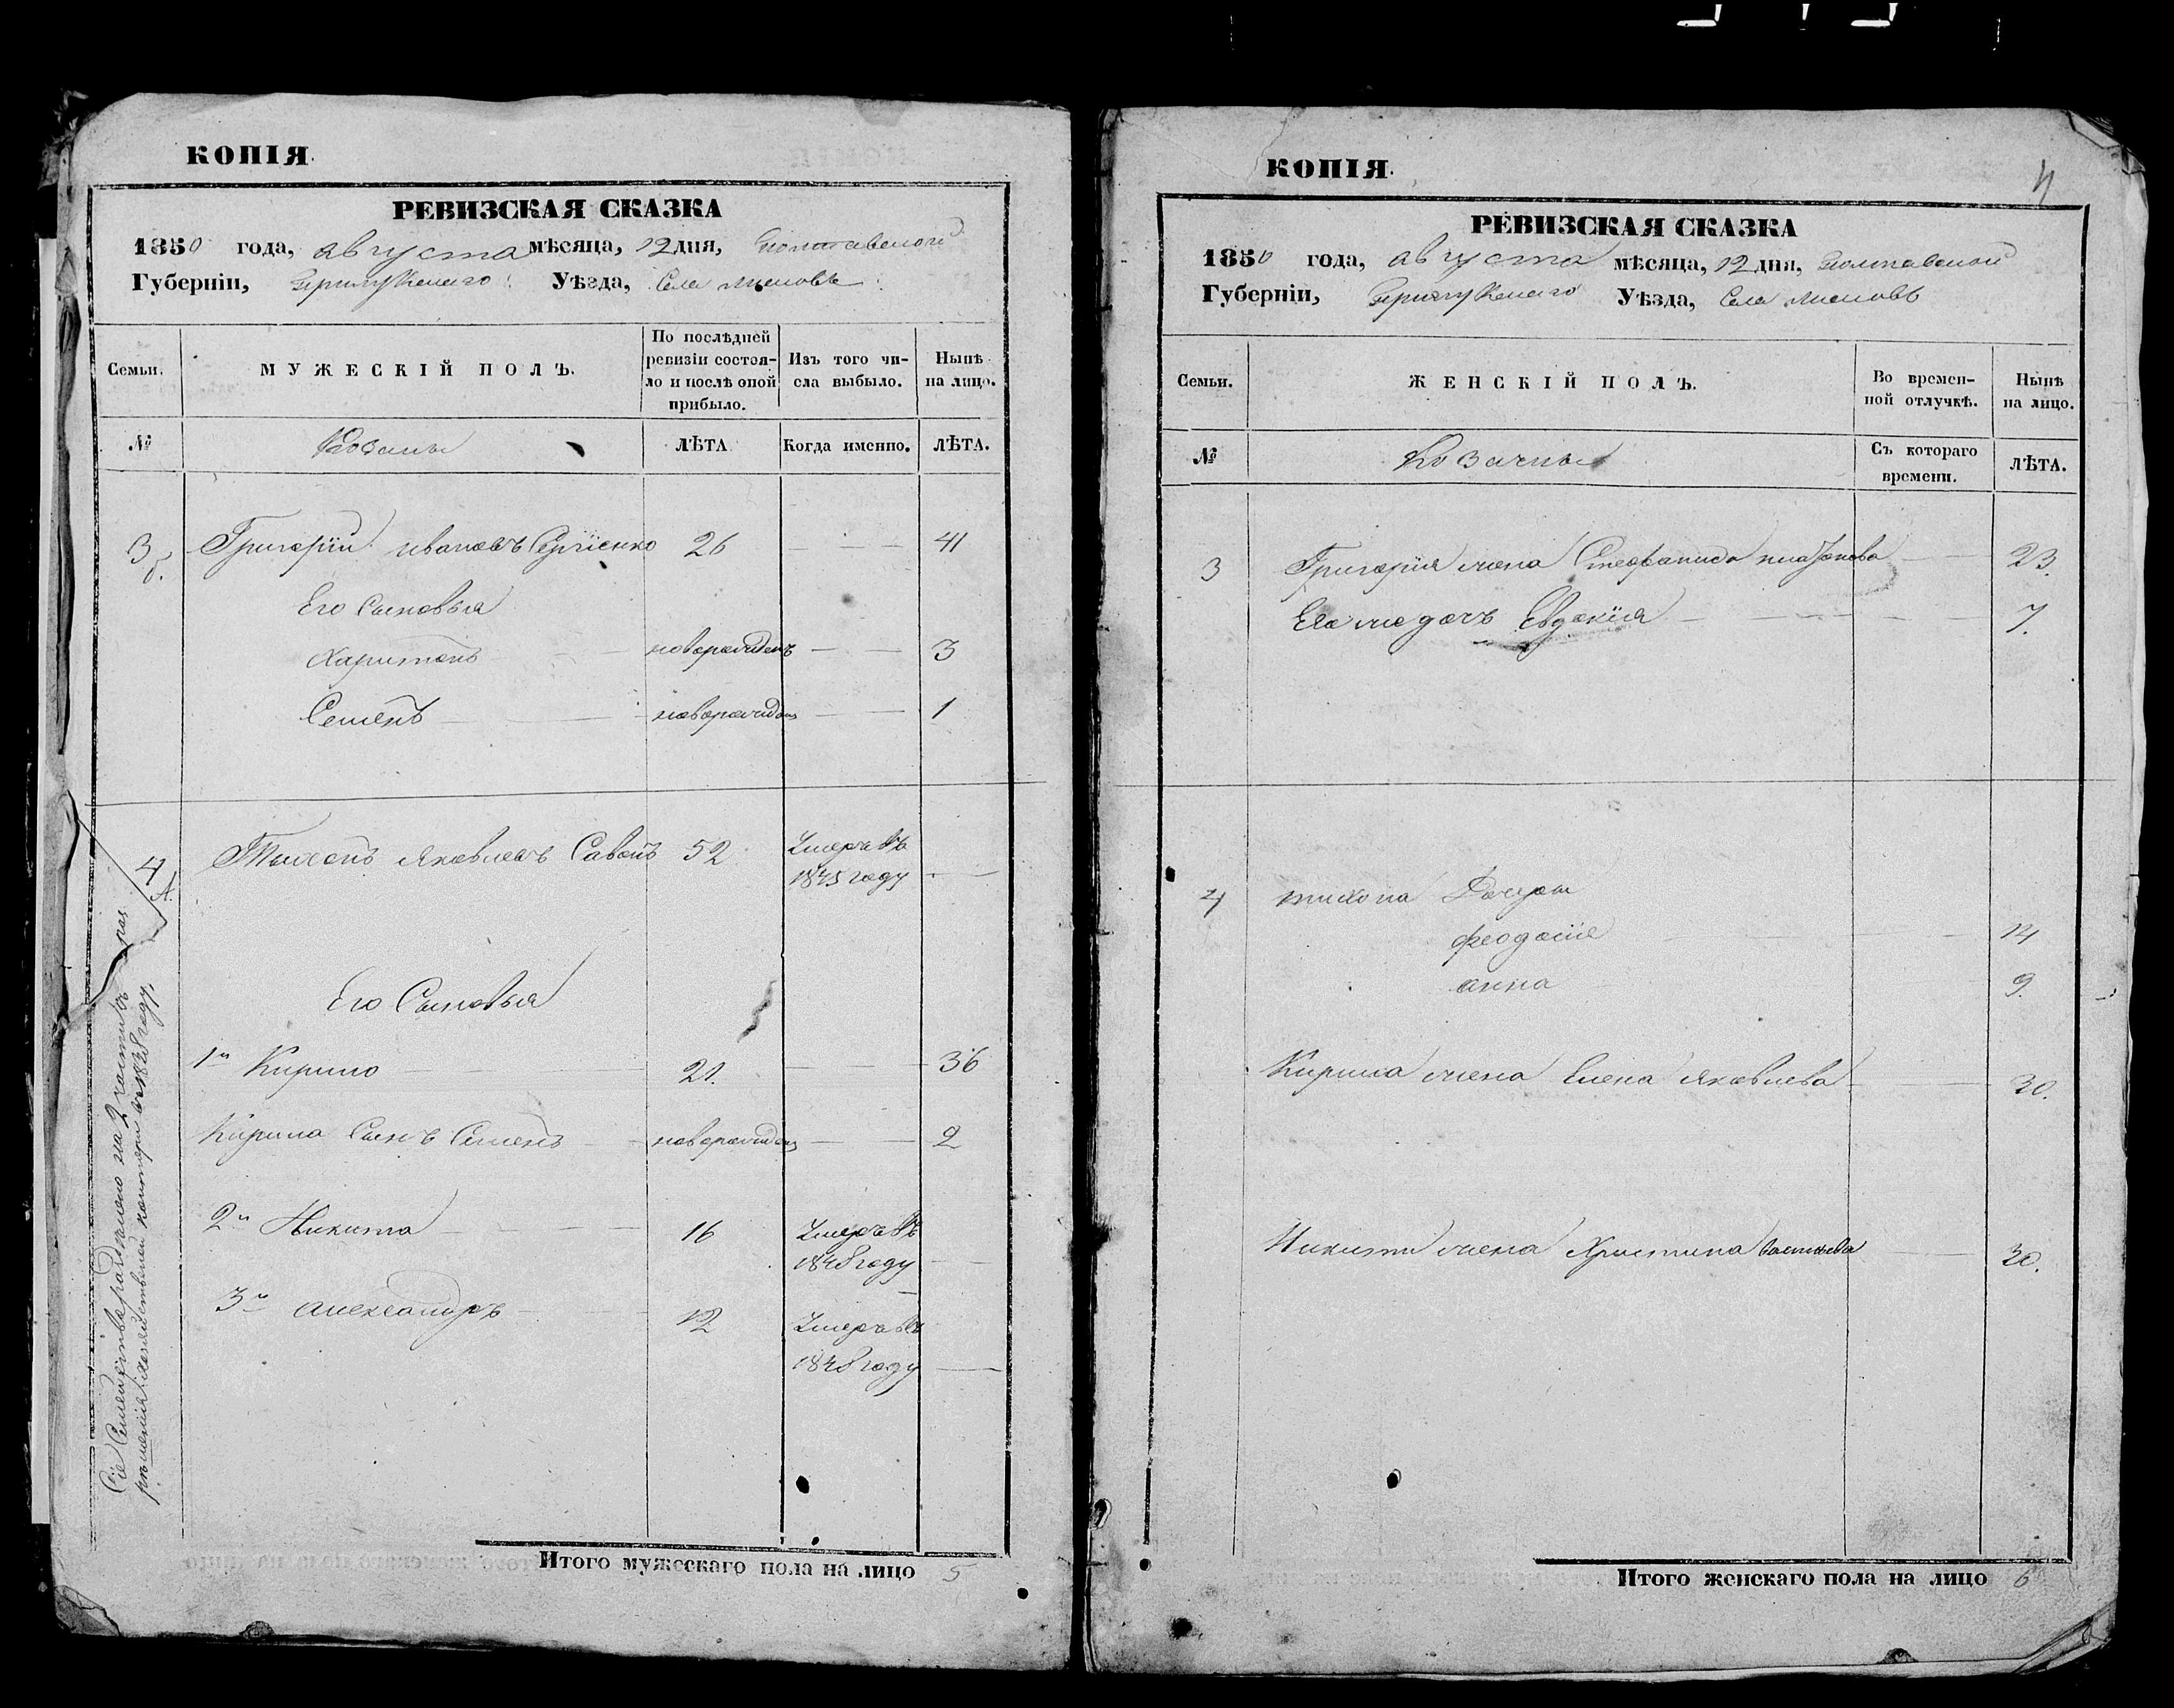 КОПІЯ.
РЕВИЗСКАЯ СКАЗКА
1850 года, августа мѣсяца, 12 дня, Полтавской
Губерніи, Прилуцкаго Уѣзда, Села
Семьи.
МУЖЕСКІЙ ПОЛЪ.
По послѣдней
ревизіи состоя-
ло и послѣ оной
прибыло.
Изъ того чи-
сла выбыло.
Нынѣ
на лицо.
№
Козаки
ЛѢТА
Когда именно.
ЛѢТА.
3 Григорій Ивановъ Сергіенко 26 41
Его Сыновья
Харитонъ новорожденъ 3
Семенъ новорожденъ 1
4 Тихонъ Яковлевъ Савонъ 52 Умеръ въ
1845 году
А.
Его Сыновья
1й Кирило 21. 36
Кирила Сынъ Семенъ новорожден 2
2й Никита 16 Умеръ въ
1848 году
3й александръ 12 Умеръ въ
1848 году
Сіе Семейство на 2 части
1838 году.
Итого мужескаго пола на лицо 5
КОПІЯ.
4
РЕВИЗСКАЯ СКАЗКА
1850 года, августа мѣсяца, 12 дня, Полтавской
Губерніи, Прилуцкаго Уѣзда, Села
Семьи.
ЖЕНСКІЙ ПОЛЪ.
Во времен-
ной отлучкѣ.
Нынѣ
на лицо.
№
Козачки
Съ котораго
времени.
ЛѢТА.
3 Григорія жена Стефанида Платонова 23.
Его же дочь Евдокія 7.
4 тихона Дочери
феодосія 14
анна 9.
Кирила жена Елена Яковлева 30.
Никити жена Христина 30.
Итого женскаго пола на лицо 6